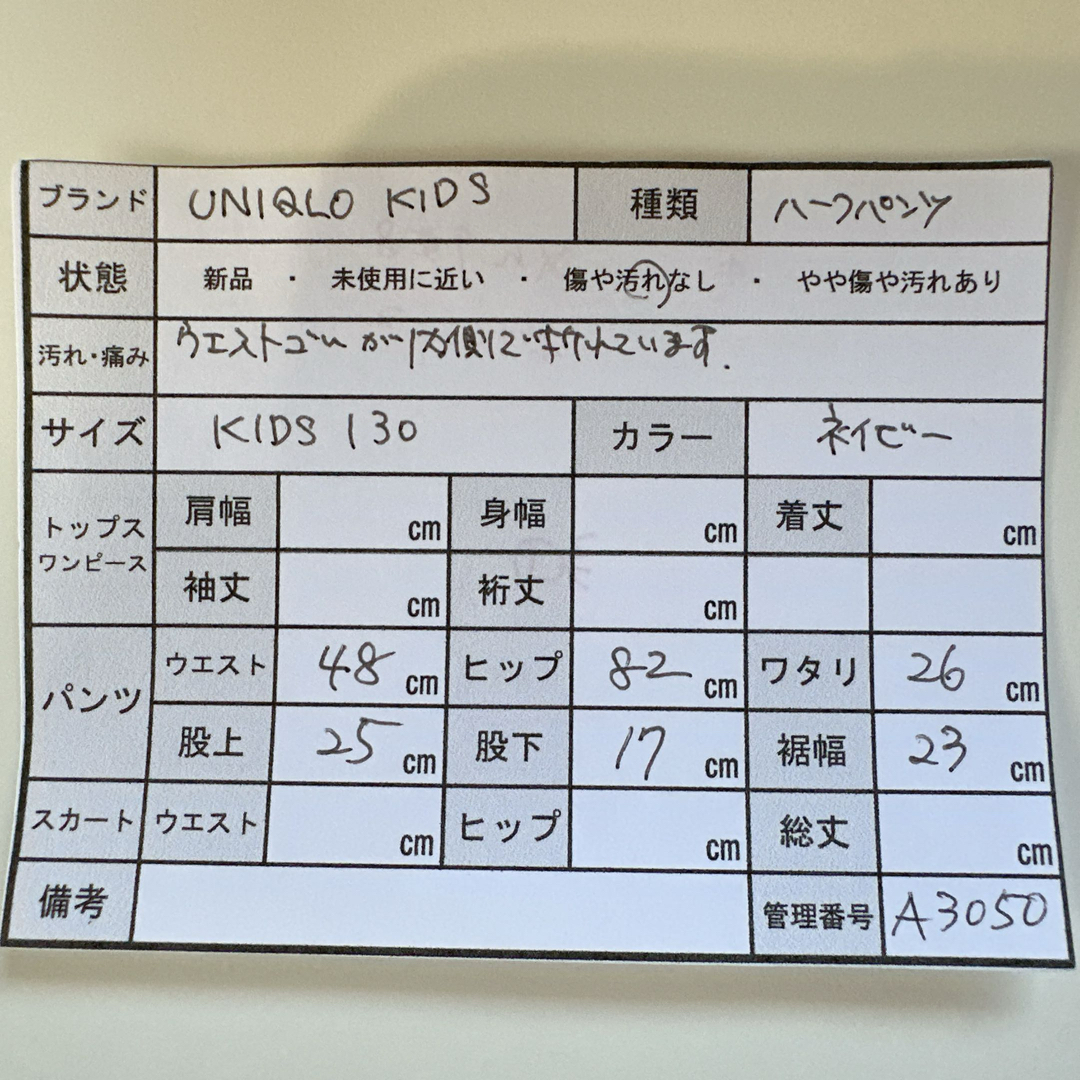 ブランド UNIQLO KIDS 種類 ハーフパンツ
状態 新品 ・ 未使用に近い ・ 傷や汚れなし ・ やや傷や汚れあり
汚れ・痛み ウエストゴムが内側で ています.
サイズ KIDS 130 カラー ネイビー
トップス
ワンピース
肩幅 cm 身幅 cm 着丈 cm
袖丈 cm 裄丈 cm
パンツ
ウエスト 48 cm ヒップ 82 cm ワタリ 26 cm
股上 25 cm 股下 17 cm 裾幅 23 cm
スカート ウエスト cm ヒップ cm 総丈 cm
備考 管理番号 A3050